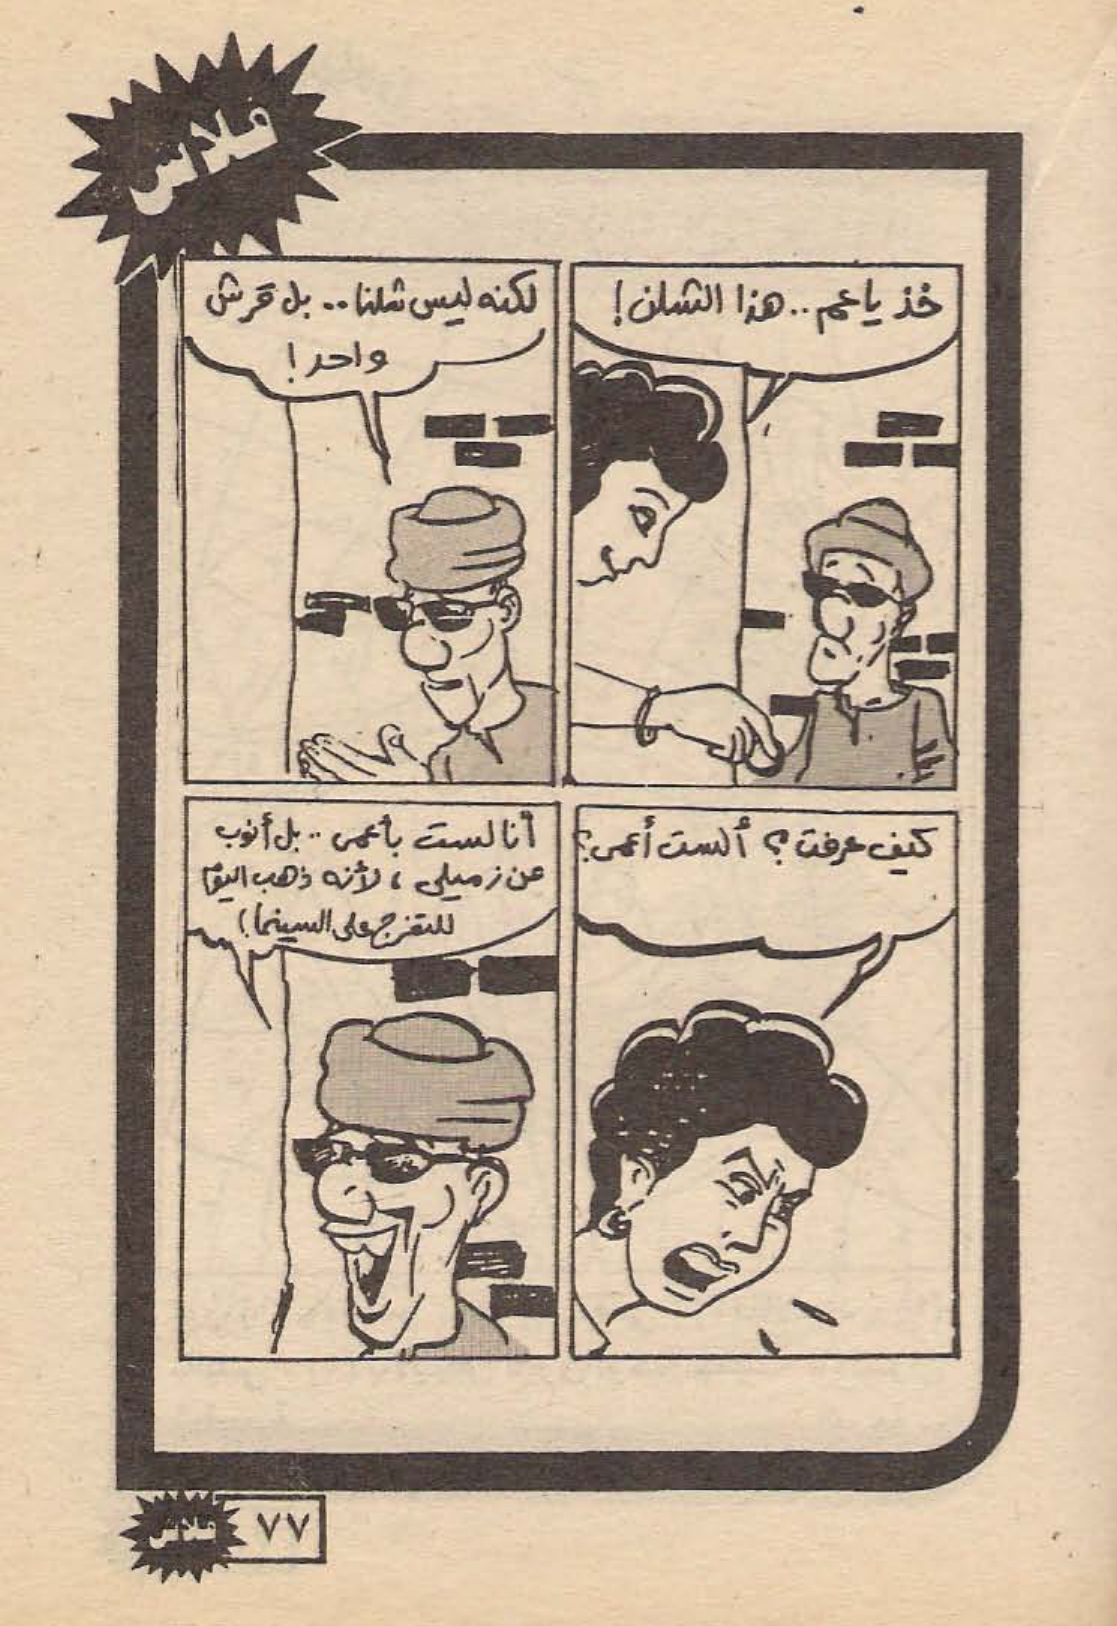 فلاش
خذ ياعم.. هذا الشلن!
لكنه ليس شلنا.. بل قرش
واحد!
كيف عرفت؟ ألست أعمى؟
أنا لست بأعمى.. بل أنوب
عن زميلى، لأنه ذهب اليوم
للتفرج على السينما!
فلاش
٧٧